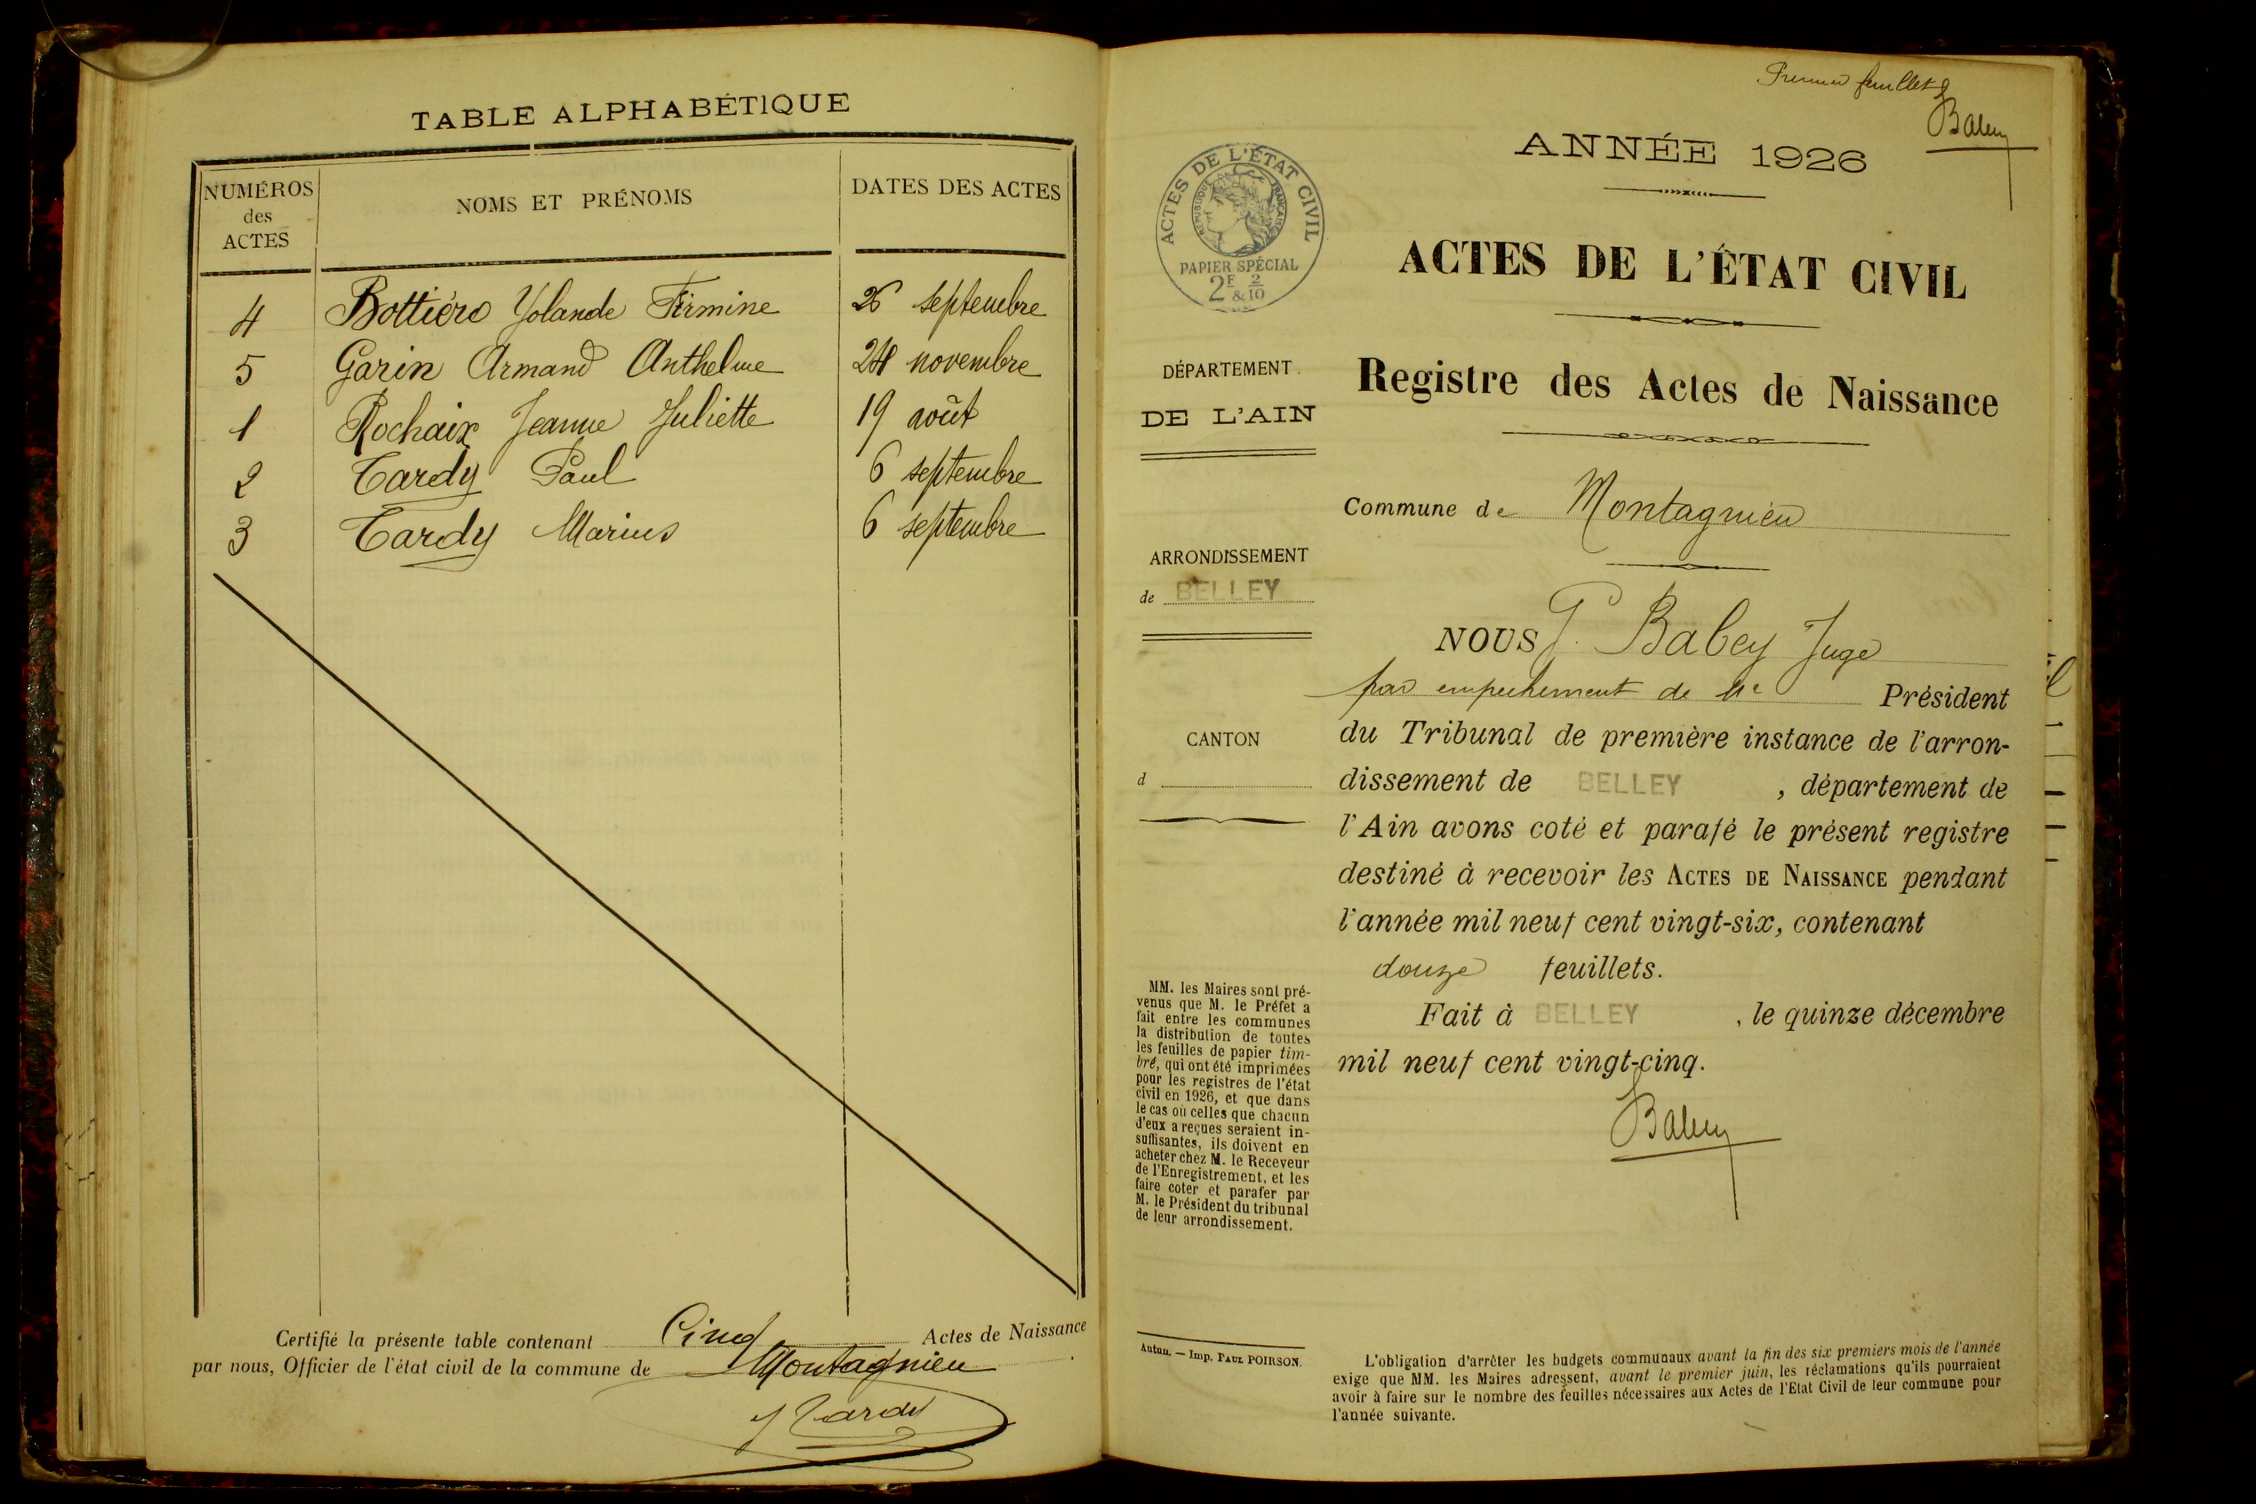 TABLE ALPHABÉTIQUE
NUMÉROS des ACTES
NOMS ET PRÉNOMS
DATES DES ACTES
4 Bottiéro Yolande Firmine 26 septembre
5 Garin Armand Anthelme 24 novembre
1 Rochaix Jeanne Juliette 19 août
2 Tardy Paul 6 septembre
3 Tardy Marius 6 septembre
Certifié la présente table contenant Cinq Actes de Naissance
par nous, Officier de l'état civil de la commune de Montagnieu
Tardy
Premier feuillet
Babey
ACTES DE L'ÉTAT CIVIL
RÉPUBLIQUE FRANÇAISE
PAPIER SPÉCIAL
2F & 2/10
ANNÉE 1926
ACTES DE L'ÉTAT CIVIL
Registre des Actes de Naissance
DÉPARTEMENT
DE L'AIN
ARRONDISSEMENT
de BELLEY
CANTON
d
MM. les Maires sont pré-
venus que M. le Préfet a
fait entre les communes
la distribution de toutes
les feuilles de papier tim-
bré, qui ont été imprimées
pour les registres de l'état
civil en 1926, et que dans
le cas où celles que chacun
d'eux a reçues seraient in-
suffisantes, ils doivent en
acheter chez M. le Receveur
de l'Enregistrement, et les
faire coter et parafer par
M. le Président du tribunal
de leur arrondissement.
Autun. — Imp. PAUL POIRSON.
Commune de Montagnieu
NOUS P. Babey Juge
par empechement de Mr Président
du Tribunal de première instance de l'arron-
dissement de BELLEY , département de
l'Ain avons coté et parafé le présent registre
destiné à recevoir les ACTES DE NAISSANCE pendant
l'année mil neuf cent vingt-six, contenant
douze feuillets.
Fait à BELLEY , le quinze décembre
mil neuf cent vingt-cinq.
Babey
L'obligation d'arrêter les budgets communaux avant la fin des six premiers mois de l'année
exige que MM. les Maires adressent, avant le premier juin, les réclamations qu'ils pourraient
avoir à faire sur le nombre des feuilles nécessaires aux Actes de l'Etat Civil de leur commune pour
l'année suivante.